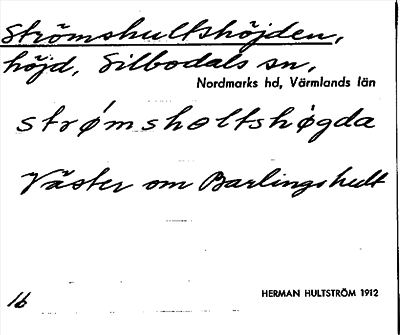 Strömshultshöjden,
höjd, Silbodals sn,
Nordmarks hd, Värmlands län
strømsholtshøgda
Väster om Barlingshult
16
HERMAN HULTSTRÖM 1912